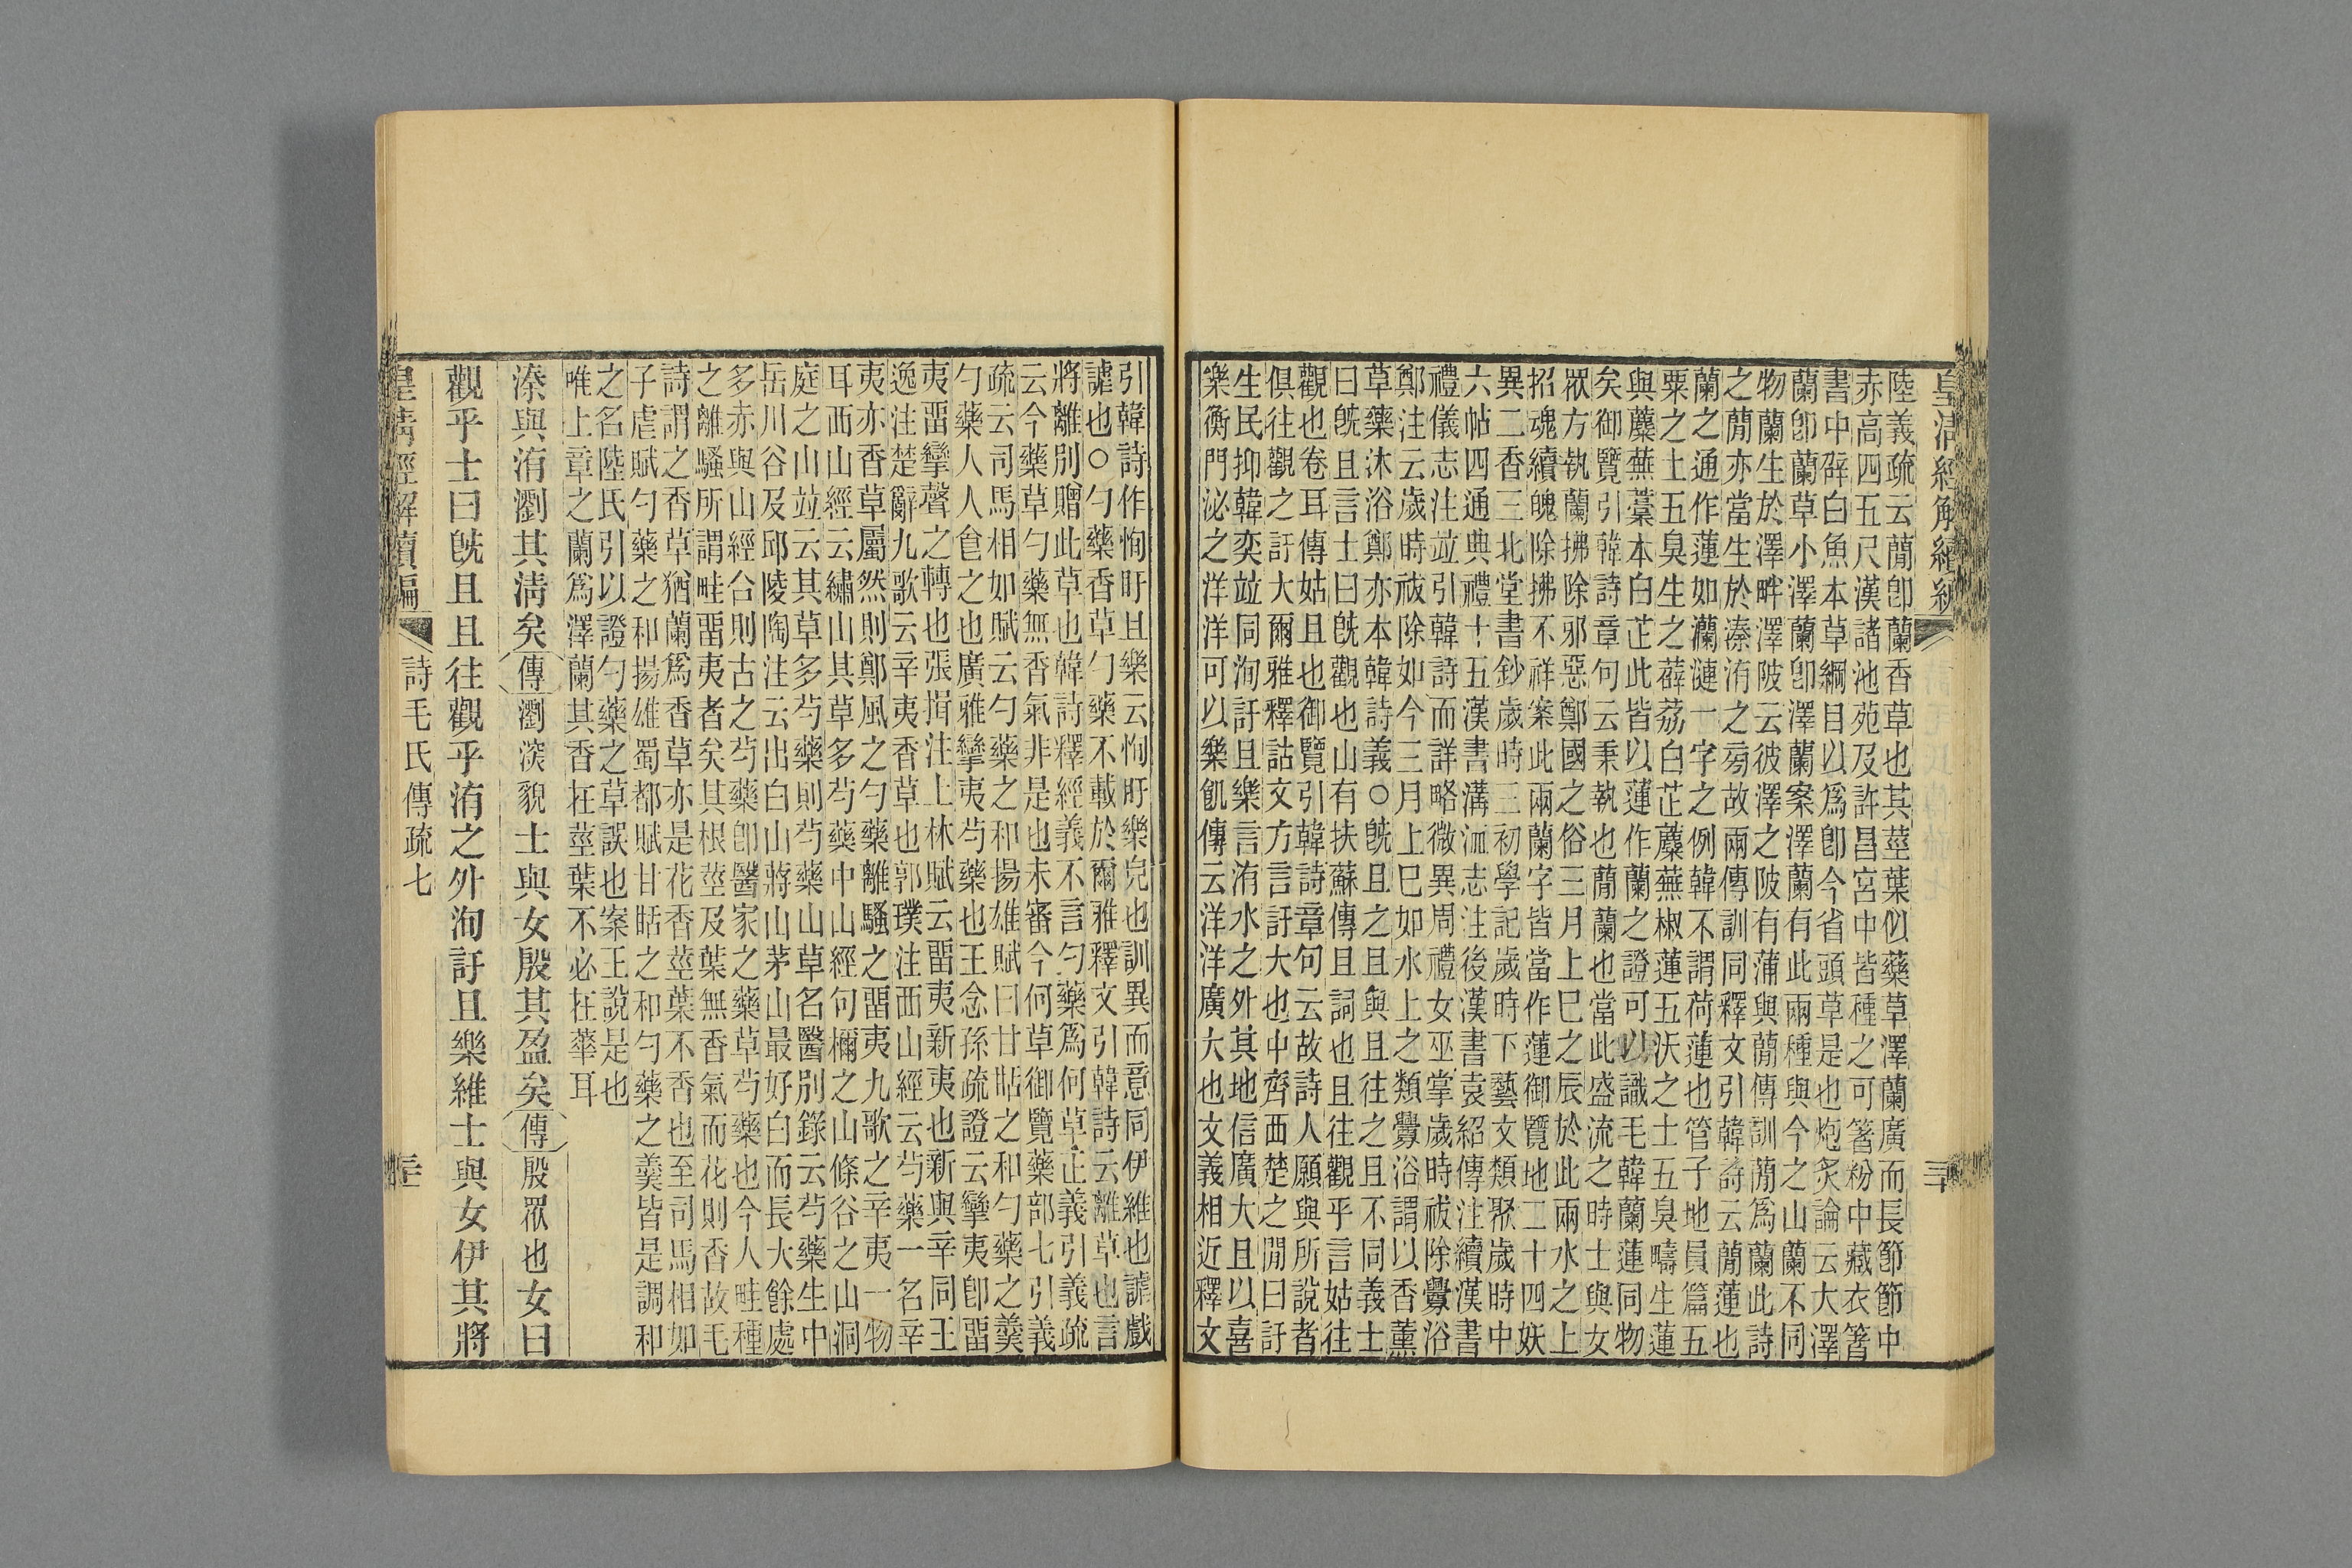 皇清經解續編
三十
陸義疏云蕑卽蘭香草也其莖葉似藥草澤蘭廣而長節節中
赤高四五尺漢諸池苑及許昌宮中皆種之可箸粉中藏衣箸
書中辟白魚本草綱目以爲卽今省頭草是也炮炙論云大澤
蘭卽蘭草小澤蘭卽澤蘭案澤蘭有此兩種與今之山蘭不同
物蘭生於澤畔澤陂云彼澤之陂有蒲與蕑傳訓蕑爲蘭此詩
之蕑亦當生於溱洧之旁故兩傳訓同釋文引韓詩云蕑蓮也
蘭之通作蓮如瀾漣一字之例韓不謂荷蓮也管子地員篇五
粟之土五臭生之薜荔白芷蘪蕪椒蓮五沃之土五臭疇生蓮
與蘪蕪藁本白芷此皆以蓮作蘭之證可以識毛韓蘭蓮同物
矣御覽引韓詩章句云秉執也蕑蘭也當此盛流之時士與女
眾方執蘭拂除邪惡鄭國之俗三月上巳之辰於此兩水之上
招魂續魄除拂不祥案此兩蘭字皆當作蓮御覽地二十四妖
異二香三北堂書鈔歲時三初學記歲時下藝文類聚歲時中
六帖四通典禮十五漢書溝洫志注後漢書袁紹傳注續漢書
禮儀志注竝引韓詩而詳略微異周禮女巫掌歲時祓除釁浴
鄭注云歲時祓除如今三月上巳如水上之類釁浴謂以香薰
草藥沐浴鄭亦本韓詩義○旣且之且與且往之且不同義士
曰旣且言士曰旣觀也山有扶蘇傳且詞也且往觀乎言姑往
觀也卷耳傳姑且也御覽引韓詩章句云故詩人願與所說者
俱往觀之訏大爾雅釋詁文方言訏大也中齊西楚之閒曰訏
生民抑韓奕竝同洵訏且樂言洧水之外其地信廣大且以喜
樂衡門泌之洋洋可以樂飢傳云洋洋廣大也文義相近釋文
引韓詩作恂盱且樂云恂盱樂皃也訓異而意同伊維也謔戲
謔也○勺藥香草勺藥不載於爾雅釋文引韓詩云離草也言
將離別贈此草也韓詩釋經義不言勺藥爲何草正義引義疏
云今藥草勺藥無香氣非是也未審今何草御覽藥部七引義
疏云司馬相如賦云勺藥之和揚雄賦曰甘甛之和勺藥之羹
勺藥人人食之也廣雅攣夷芍藥也王念孫疏證云攣夷卽畱
夷畱攣聲之轉也張揖注上林賦云畱夷新夷也新與辛同王
逸注楚辭九歌云辛夷香草也郭璞注西山經云芍藥一名辛
夷亦香草屬然則鄭風之勺藥離騷之畱夷九歌之辛夷一物
耳西山經云繡山其草多芍藥中山經句檷之山條谷之山洞
庭之山竝云其草多芍藥則芍藥山草名醫別錄云芍藥生中
岳川谷及邱陵陶注云出白山蔣山茅山最好白而長大餘處
多赤與山經合則古之芍藥卽醫家之藥草芍藥也今人畦種
之離騷所謂畦畱夷者矣其根莖及葉無香氣而花則香故毛
詩謂之香草猶蘭爲香草亦是花香莖葉不香也至司馬相如
子虛賦勺藥之和揚雄蜀都賦甘甛之和勺藥之羹皆是調和
之名陸氏引以證勺藥之草誤也案王說是也
唯上章之蘭爲澤蘭其香在莖葉不必在華耳
溱與洧瀏其淸矣傳瀏深貌士與女殷其盈矣傳殷眾也女曰
觀乎士曰旣且且往觀乎洧之外洵訏且樂維士與女伊其將
皇清經解續編
詩毛氏傳疏七